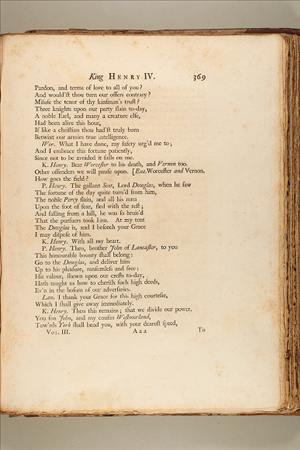 King HENRY IV. 369
Pardon, and terms of love to all of you?
And would'ſt thou turn our offers contrary?
Miſuſe the tenor of thy kinſman's truſt?
Three knights upon our party ſlain to-day,
A noble Earl, and many a creature elſe,
Had been alive this hour,
If like a chriſtian thou had'ſt truly born
Betwixt our armies true intelligence.
Wor. What I have done, my ſafety urg'd me to;
And I embrace this fortune patiently,
Since not to be avoided it falls on me.
K. Henry. Bear Worceſter to his death, and Vernon too.
Other offenders we will pauſe upon. [Exe. Worceſter and Vernon.
How goes the field?
P. Henry. The gallant Scot, Lord Douglas, when he ſaw
The fortune of the day quite turn'd from him,
The noble Percy ſlain, and all his men
Upon the foot of fear, fled with the reſt;
And falling from a hill, he was ſo bruis'd
That the purſuers took him. At my tent
The Douglas is, and I beſeech your Grace
I may diſpoſe of him.
K. Henry. With all my heart.
P. Henry. Then, brother John of Lancaſter, to you
This honourable bounty ſhall belong:
Go to the Douglas, and deliver him
Up to his pleaſure, ranſomleſs and free:
His valour, ſhewn upon our creſts to-day,
Hath taught us how to cheriſh ſuch high deeds,
Ev'n in the boſom of our adverſaries.
Lan. I thank your Grace for this high courteſie,
Which I ſhall give away immediately.
K. Henry. Then this remains; that we divide our power.
You ſon John, and my couſin Weſtmorland,
Tow'rds York ſhall bend you, with your deareſt ſpeed,
VOL. III. A a a To